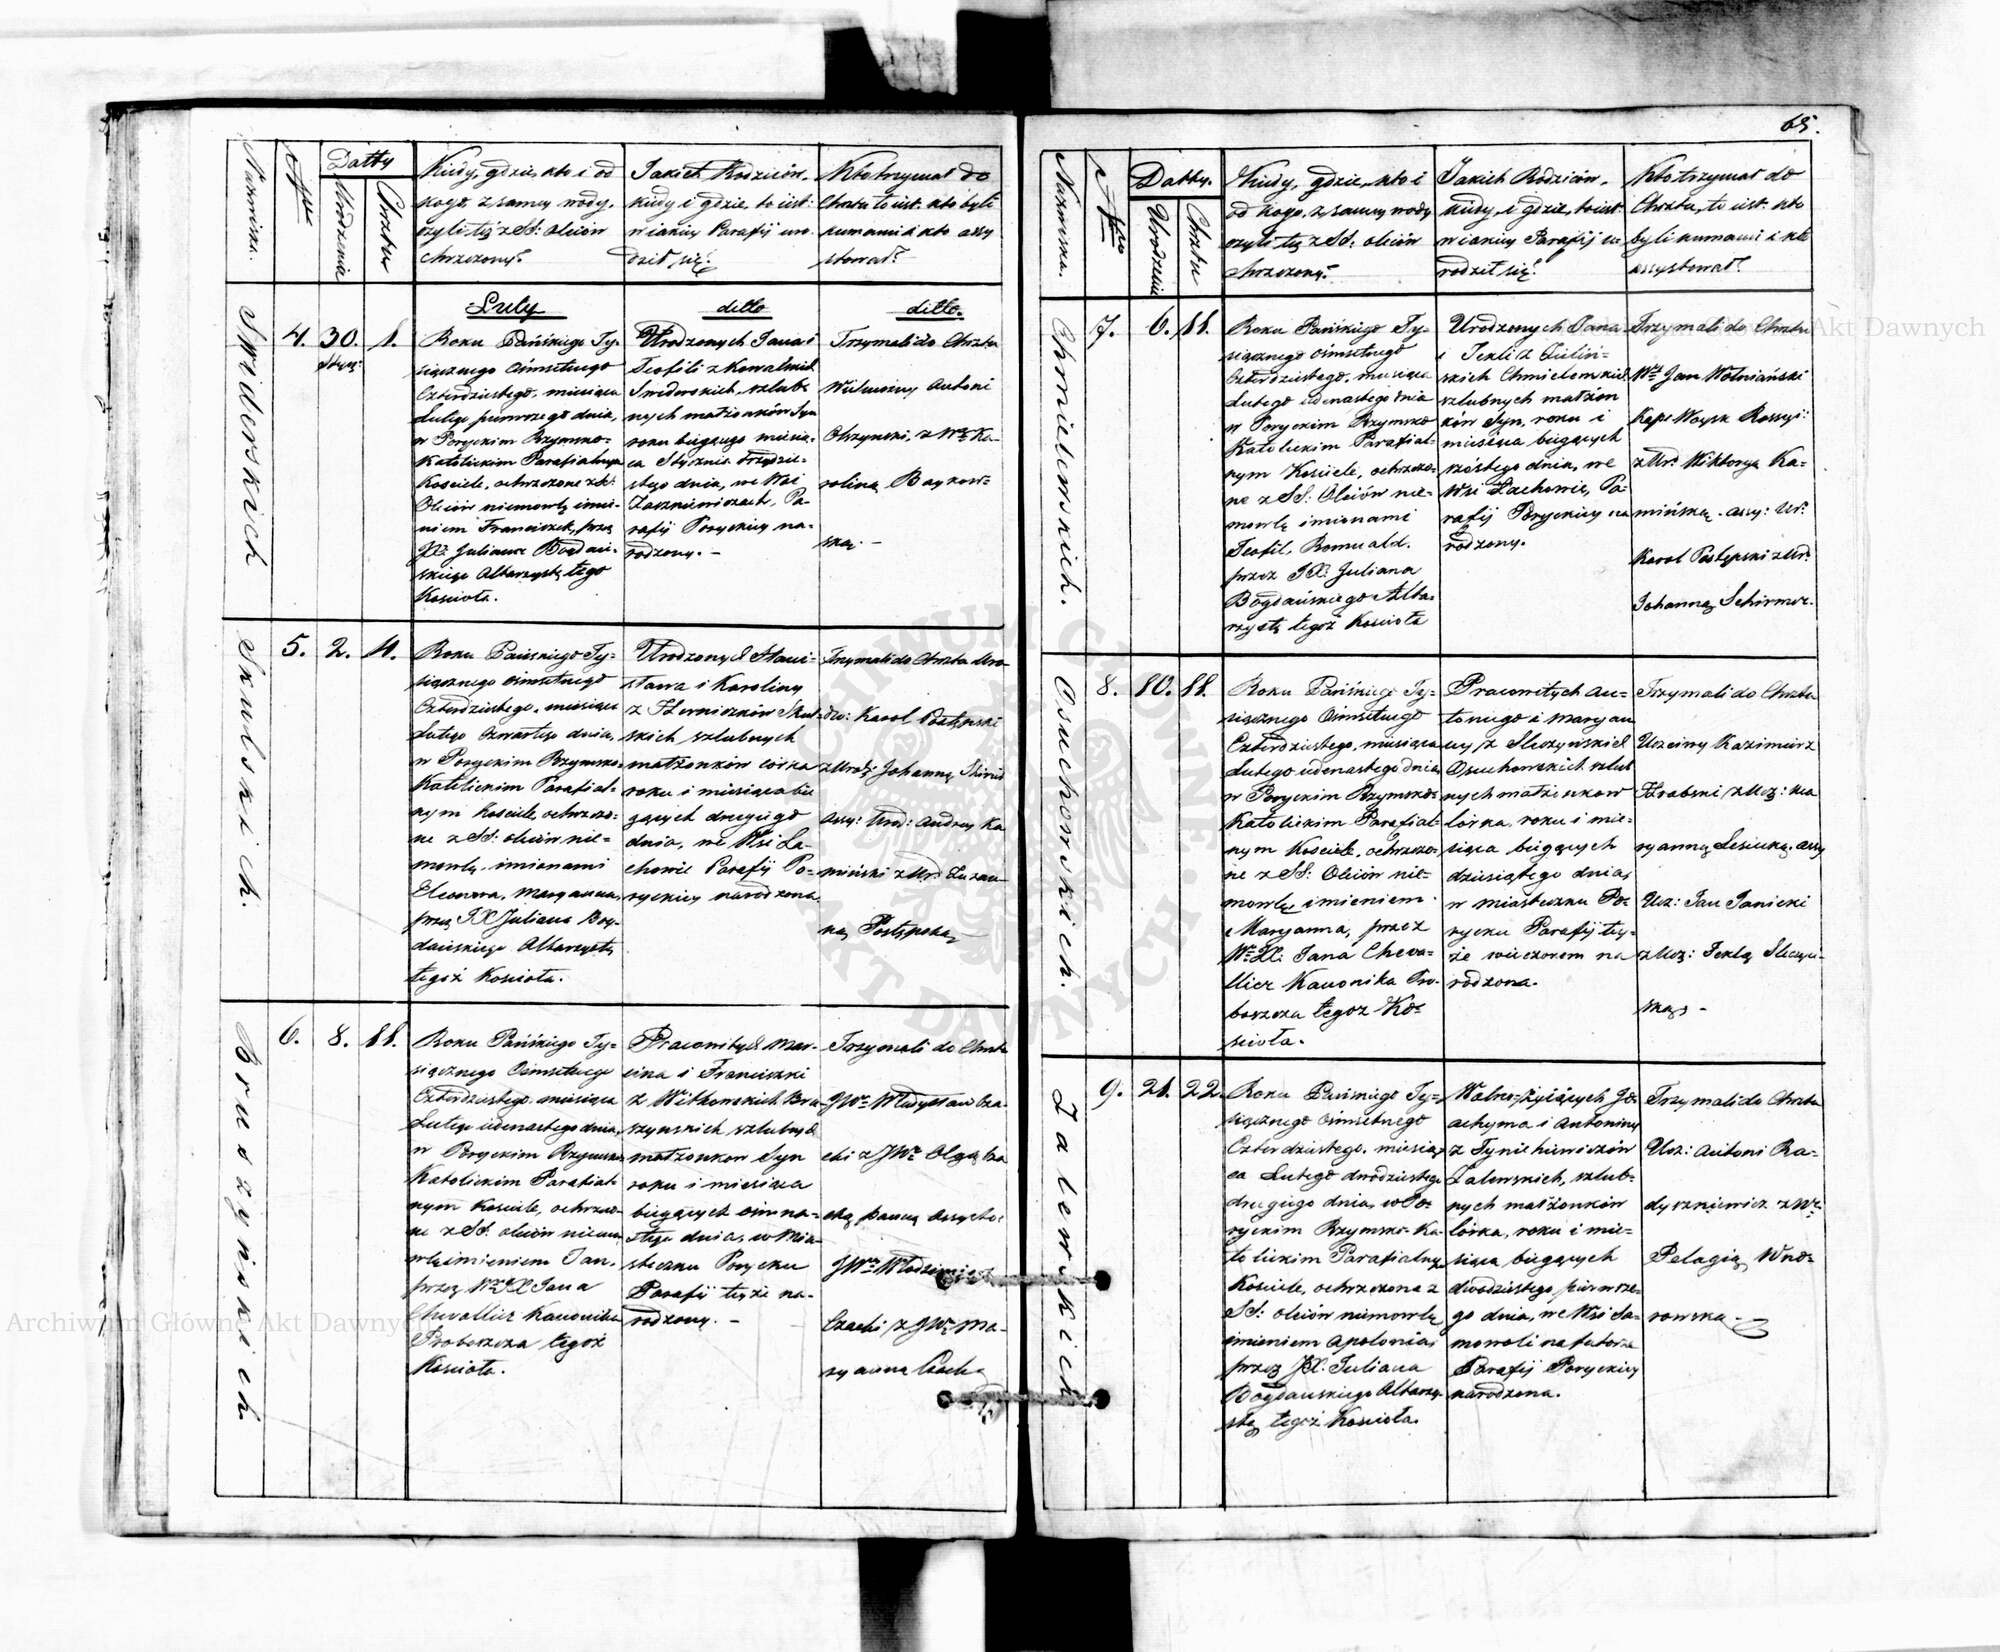 65.
Nazwiska.
Nro
Datty
Urodzenia
Chrztu
Kiedy, gdzie, kto i od
kogo, z samey wody,
czyli też z SS: oleiów
chrzczony?
Jakich Rodziców,
kiedy i gdzie, to iest:
w iakiey Parafij uro
dził się?
Kto trzymał do
Chrztu to iest: kto byli
kumami i kto assy
stował?
Luty
ditto
ditto.
Swiderskich
4.
30.
1.
Roku Pańskiego Ty-
siącznego Ośmsetnego
Czterdziestego, miesiąca
Lutego pierwszego dnia,
w Poryckim Rzymsko-
Katolickim Parafialnym
Kościele, ochrzczone z SS:
Oleiów niemowlę imie-
niem Franciszek, przez
JX: Juliana Bogdań-
skiego Altarzystę tego
Kościoła.
Urodzonych Jana i
Teofili z Kowalskich
Swiderskich, szlubn
nych małżonków Syn
roku bieżącego miesią-
ca Stycznia trzydzie-
stego dnia, we Wsi
Pa-
rafij Poryckiey na-
rodzony. -
Trzymali do Chrztu
Wielmożny Antoni
Olszyński, z Wą Ka-
roliną Baykow-
ską. -
Skulskich.
5.
2.
4.
Roku Pańskiego Ty-
siącznego ośmsetnego
Czterdziestego, miesiąca
Lutego czwartego dnia,
w Poryckim Rzymsko-
Katolickim Parafial-
nym Kościele, ochrzczo-
ne z SS: oleiów nie-
mowlę, imionami
Eleonora, Maryanna,
przez JX Juliana Bog-
dańskiego Altarzystę
tegoż Kościoła.
Urodzonych Stani-
sława i Karoliny
z Skul-
skich szlubnych
małżonków córka
roku i miesiąca bie
żących drugiego
dnia, we Wsi La-
chowie Parafij Po-
ryckiey narodzona.
Trzymali do Chrztu Uro-
dzo: Karol Postępski
z Urodz: Johanną
assy: Urod: Andrzey Ka
miński z Urd Zuzan-
ną Postępską
Bruszyńskich
6.
8.
11.
Roku Pańskiego Ty-
siącznego Ośmsetnego
Czterdziestego, miesiąca
Lutego iedenastego dnia,
w Poryckim Rzymsko
Katolickim Parafial
nym Kościele, ochrzczo-
ne z SS. oleiów niemo
wlę imieniem Jan,
przez WJX Jana
Chevallier Kanonika
Proboszcza tegoż
Kościoła.
Pracowitych Mar-
cina i Franciszki
z Witkowskich Bru
szyńskich szlubnych
małżonków Syn
roku i miesiąca
bieżących ośmna-
stego dnia, w Mia-
steczku Porycku
Parafij teyże na-
rodzony. -
Trzymali do Chrztu
JWny Władysław Cza-
cki z JWną Olgą Cza
cką panną Assysto:
JWny Włodzimierz
Czacki z JWną Ma-
ryanną Czacką
Nazwiska.
Nro
Datty.
Urodzenia
Chrztu
Kiedy, gdzie, kto i
od kogo, z samey wody
czyli też z SS: oleiów
chrzczony?
Jakich Rodziców,
kiedy, i gdzie, to iest:
w iakiey Parafij u-
rodził się?
Kto trzymał do
Chrztu, to iest: kto
byli kumami i kto
assystował?
Chmielewskich.
7.
6.
11.
Roku Pańskiego Ty-
siącznego Ośmsetnego
Czterdziestego, miesiąca
Lutego iedenastego dnia
w Poryckim Rzymsko
Katolickim Parafial-
nym Kościele, ochrzczo-
ne z SS: Oleiów nie-
mowlę imionami
Teofil, Romuald.
przez JX: Juliana
Bogdańskiego Alta-
rzystę tegoż Kościoła
Urodzonych Jana
i Tekli z Bieliń-
skich Chmielewskich
szlubnych małżon
ków Syn, roku i
miesiąca bieżących
szóstego dnia, we
Wsi Lachowie, Pa-
rafij Poryckiey na
rodzony.
Trzymali do Chrztu
Wny Jan Wołniański
Kap: Woysk Rossyi:
z Ur: Wiktoryą Ka-
mińską. assy: Ur:
Karol Postępski z Ur:
Johanną Schirmer.
Osuchowskich.
8.
10.
11.
Roku Pańskiego Ty-
siącznego Ośmsetnego
Czterdziestego, miesiąca
Lutego iedenastego dnia
w Poryckim Rzymsko
Katolickim Parafial-
nym Kościele, ochrzczo-
ne z SS: Oleiów nie-
mowlę imieniem
Maryanna, przez
WJX: Jana Cheva-
llier Kanonika Pro-
boszcza tegoż Ko-
ścioła.
Pracowitych An-
toniego i Maryan
ny z Sleszyńskich
Osuchowskich szlub
nych małżonków
córka, roku i mie-
siąca bieżących
dziesiątego dnia,
w miasteczku Po-
rycku Parafij tey-
że wieczorem na
rodzona.
Trzymali do Chrztu
Uczciwy Kazimierz
Hrabski, z Ucz: Ma
ryanną Lesiecką, assy
Ucz: Jan Janicki
z Ucz: Teklą Sleszyń-
ską. -
Zalewskich
9.
21.
22.
Roku Pańskiego Ty-
siącznego Ośmsetnego
Czterdziestego, miesią
ca Lutego dwudziestego
drugiego dnia, w Po-
ryckim Rzymsko-Ka-
tolickim Parafialnym
Kościele, ochrzczona z
SS: oleiów niemowlę
imieniem Apolonia,
przez JX: Juliana
Bogdańskiego Altarzy-
stę tegoż Kościoła.
Wolno-żyiących Jo-
achyma i Antoniny
z Tyniehiewiczów
Zalewskich, szlub-
nych małżonków
córka, roku i mie-
siąca bieżących
dwudziestego pierwsze-
go dnia, we Wsi Sa-
mowoli na futorze
Parafij Poryckiey
narodzona.
Trzymali do Chrztu
Ucz: Antoni Ra-
dyszkiewicz z Wą
Pelagią Wno-
rowską. -
Archiwum Główne Akt Dawnych
Archiwum Główne Akt Dawnych
ARCHIWUM GŁÓWNE AKT DAWNYCH